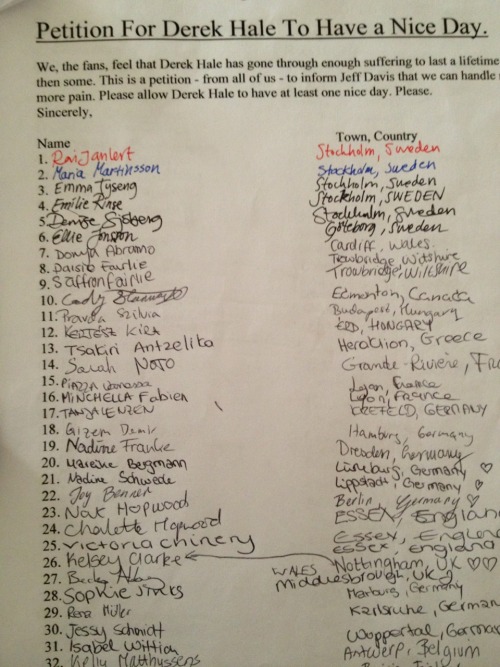 Petition For Derek Hale To Have a Nice Day.
We, the fans, feel that Derek Hale has gone through enough suffering to last a lifetime
then some. This is a petition - from all of us - to inform Jeff Davis that we can handle
more pain. Please allow Derek Hale to have at least one nice day. Please.
Sincerely,
Name Town, Country
1. Stockholm, Sweden
2. Maria Martinsson Stockholm, Sweden
3. Emma Stockholm, Sweden
4. Emilie Stockholm, SWEDEN
5. Denise Sjöberg Stockholm, Sweden
6. Ellie Jonson Göteborg, Sweden
7. Donya Abramo Cardiff, Wales.
8. Daisie Fairlie Trowbridge, Wiltshire
9. Saffron Fairlie Trowbridge, Wiltshire
10. Cody Edmonton, Canada
11. Pravda Szilvia Budapest, Hungary
12. KERTÉSZ KIRA ÉRD, HUNGARY
13. Tsakiri Antzelika Heraklion, Greece
14. Sarah NOTO Grande-Rivière,
15. PIAZZA Vanessa Lyon, France
16. MINCHELLA Fabien Lyon, FRANCE
17. TANJA LENZEN KREFELD, GERMANY
18. Gizem Demir Hamburg, Germany
19. Nadine Franke Dresden, Germany
20. Mareike Bergmann Lüneburg, Germany ♡
21. Nadine Schwede Lippstadt, Germany ♡
22. Joy Berlin, Germany ♡
23. Nat Hopwood ESSEX, England
24. Charlotte Hopwood Essex, England
25. Victoria chinery essex, england
26. Kelsey Clarke Nottingham, UK ♡♡
27. Becky WALES Middlesbrough, UK
28. Sophie Marburg, Germany
29. Rena Müller Karlsruhe, German
30. Jessy Schmidt Wuppertal, German
31. Isabel Wittion Antwerp, Belgium
32. Kelly Matthyssens